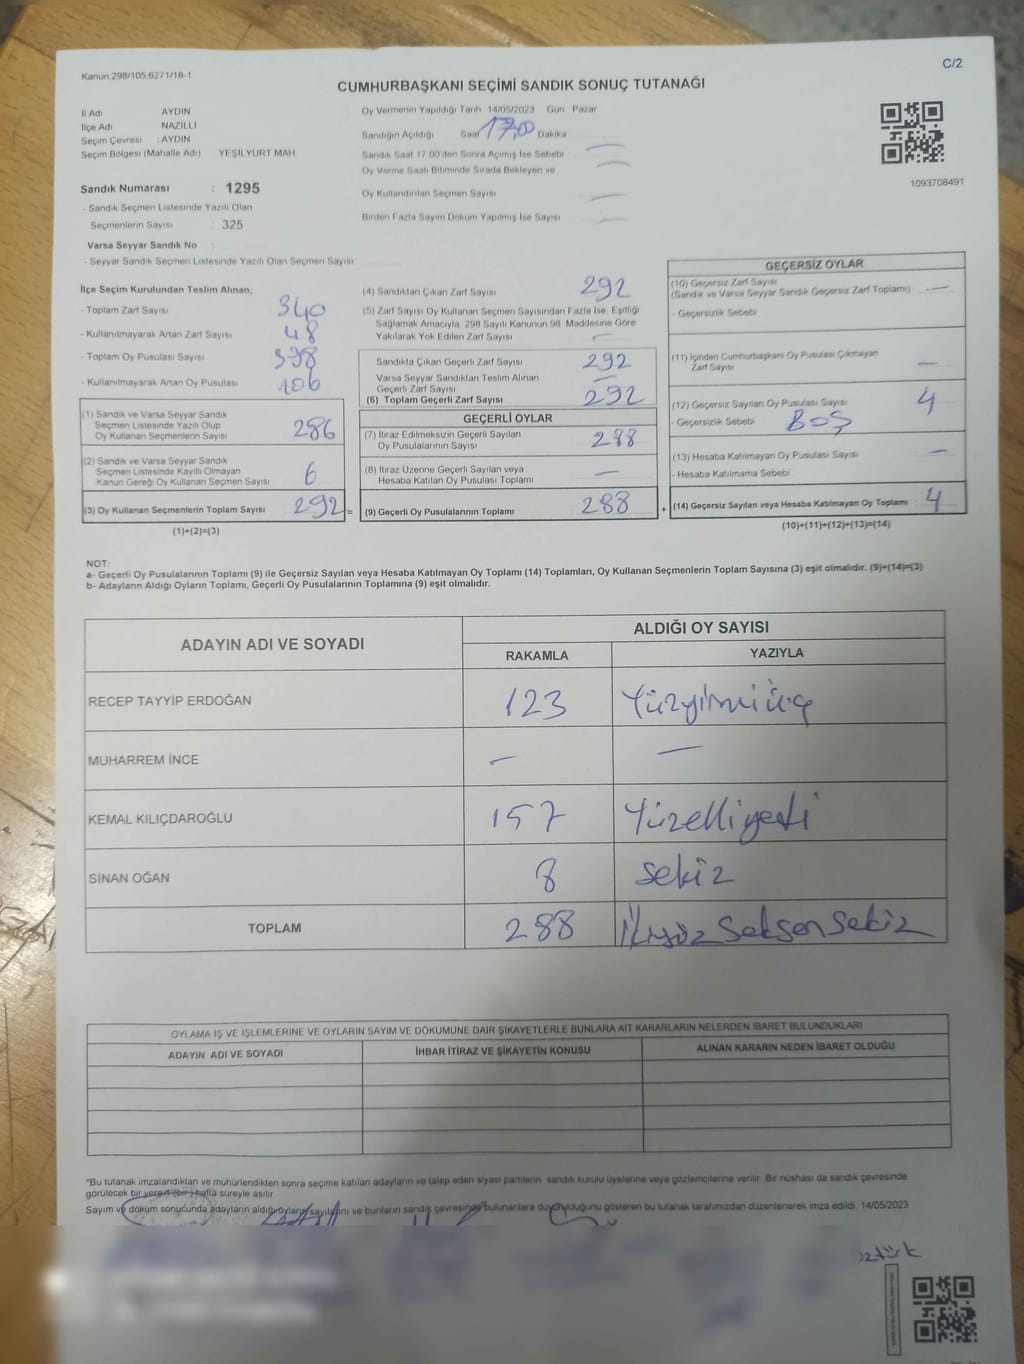 Kanun:298/105,6271/16-1
C/2
CUMHURBAŞKANI SEÇİMİ SANDIK SONUÇ TUTANAĞI
İl Adı AYDIN
İlçe Adı NAZİLLİ
Seçim Çevresi : AYDIN
Seçim Bölgesi (Mahalle Adı) YEŞİLYURT MAH
Sandık Numarası : 1295
- Sandık Seçmen Listesinde Yazılı Olan
Seçmenlerin Sayısı : 325
Varsa Seyyar Sandık No :
- Seyyar Sandık Seçmen Listesinde Yazılı Olan Seçmen Sayısı
Oy Vermenin Yapıldığı Tarih 14/05/2023 Gün Pazar
Sandığın Açıldığı Saat 17,00 Dakika
Sandık Saat 17 00'den Sonra Açılmış İse Sebebi
Oy Verme Saati Bitiminde Sırada Bekleyen ve
Oy Kullandırılan Seçmen Sayısı
Birden Fazla Sayım Döküm Yapılmış İse Sayısı
1093708491
İlçe Seçim Kurulundan Teslim Alınan;
- Toplam Zarf Sayısı 340
- Kullanılmayarak Artan Zarf Sayısı 48
- Toplam Oy Pusulası Sayısı 398
- Kullanılmayarak Artan Oy Pusulası 106
(1) Sandık ve Varsa Seyyar Sandık
Seçmen Listesinde Yazılı Olup
Oy Kullanan Seçmenlerin Sayısı 286
(2) Sandık ve Varsa Seyyar Sandık
Seçmen Listesinde Kayıtlı Olmayan
Kanun Gereği Oy Kullanan Seçmen Sayısı 6
(3) Oy Kullanan Seçmenlerin Toplam Sayısı 292 =
(1)+(2)=(3)
(4) Sandıktan Çıkan Zarf Sayısı 292
(5) Zarf Sayısı Oy Kullanan Seçmen Sayısından Fazla İse, Eşitliği
Sağlamak Amacıyla, 298 Sayılı Kanunun 98. Maddesine Göre
Yakılarak Yok Edilen Zarf Sayısı –
Sandıkta Çıkan Geçerli Zarf Sayısı 292
Varsa Seyyar Sandıktan Teslim Alınan
Geçerli Zarf Sayısı –
(6) Toplam Geçerli Zarf Sayısı 292
GEÇERLİ OYLAR
(7) İtiraz Edilmeksizin Geçerli Sayılan
Oy Pusulalarının Sayısı 288
(8) İtiraz Üzerine Geçerli Sayılan veya
Hesaba Katılan Oy Pusulası Toplamı –
(9) Geçerli Oy Pusulalarının Toplamı 288 +
GEÇERSİZ OYLAR
(10) Geçersiz Zarf Sayısı
(Sandık ve Varsa Seyyar Sandık Geçersiz Zarf Toplamı) –
- Geçersizlik Sebebi
(11) İçinden Cumhurbaşkanı Oy Pusulası Çıkmayan
Zarf Sayısı –
(12) Geçersiz Sayılan Oy Pusulası Sayısı 4
- Geçersizlik Sebebi BOŞ
(13) Hesaba Katılmayan Oy Pusulası Sayısı –
- Hesaba Katılmama Sebebi
(14) Geçersiz Sayılan veya Hesaba Katılmayan Oy Toplamı 4
(10)+(11)+(12)+(13)=(14)
NOT:
a- Geçerli Oy Pusulalarının Toplamı (9) ile Geçersiz Sayılan veya Hesaba Katılmayan Oy Toplamı (14) Toplamları, Oy Kullanan Seçmenlerin Toplam Sayısına (3) eşit olmalıdır. (9)+(14)=(3)
b- Adayların Aldığı Oyların Toplamı, Geçerli Oy Pusulalarının Toplamına (9) eşit olmalıdır.
ADAYIN ADI VE SOYADI ALDIĞI OY SAYISI
RAKAMLA YAZIYLA
RECEP TAYYİP ERDOĞAN 123 Yüzyirmiüç
MUHARREM İNCE – –
KEMAL KILIÇDAROĞLU 157 Yüzelliyedi
SİNAN OĞAN 8 Sekiz
TOPLAM 288 İkiyüz Seksen Sekiz
OYLAMA İŞ VE İŞLEMLERİNE VE OYLARIN SAYIM VE DÖKÜMÜNE DAİR ŞİKAYETLERLE BUNLARA AİT KARARLARIN NELERDEN İBARET BULUNDUKLARI
ADAYIN ADI VE SOYADI İHBAR İTİRAZ VE ŞİKAYETİN KONUSU ALINAN KARARIN NEDEN İBARET OLDUĞU
*Bu tutanak imzalandıktan ve mühürlendikten sonra seçime katılan adayların ve talep eden siyasi partilerin sandık kurulu üyelerine veya gözlemcilerine verilir. Bir nüshası da sandık çevresinde
görülecek bir yere 1 (bir) hafta süreyle asılır.
Sayım ve döküm sonucunda adayların aldığı oyların sayılarını ve bunların sandık çevresinde bulunanlara duyurulduğunu gösteren bu tutanak tarafımızdan düzenlenerek imza edildi. 14/05/2023